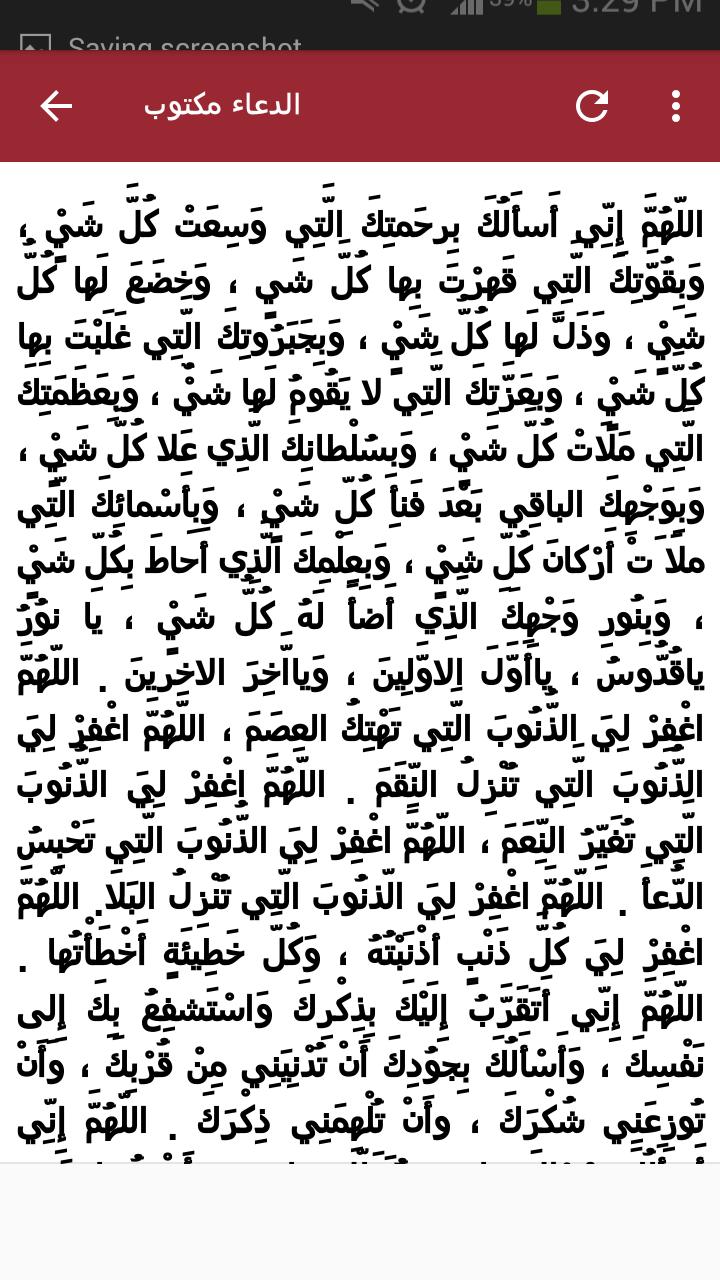 39% 3:29 PM
Saving screenshot
الدعاء مكتوب
اللّهُمَّ إِنِّي أَسأَلُكَ بِرحَمتِكَ الَّتِي وَسِعَتْ كُلَّ شَيْءٍ ،
وَبِقُوَّتِكَ الَّتِي قَهرْتَ بِها كُلَّ شَيٍ ، وَخِضَعَ لَها كُلُّ
شَيْءٍ ، وَذَلَّ لَها كُلُّ شَيْءٍ ، وَبِجَبَرُوتِكَ الَّتِي غَلَبْتَ بِها
كُلَّ شَيْءٍ ، وَبِعَزَّتِكَ الَّتِي لا يَقُومُ لَها شَيٌ ، وَبِعَظَمَتِكَ
الَّتِي مَلَاتْ كُلَّ شَيْءٍ ، وَبِسُلْطانِكَ الَّذِي عَلا كُلَّ شَيْءٍ ،
وَبِوَجْهِكَ الباقِي بَعْدَ فَنأِ كُلِّ شَيْءٍ ، وَبِأَسْمائِكَ الَّتِي
ملَا تْ أَرْكانَ كُلِّ شَيْءٍ ، وَبِعِلْمِكَ الَّذِي أَحاطَ بِكُلِّ شَيْءٍ
، وَبِنُورِ وَجْهِكَ الَّذِي أَضأَ لَهُ كُلُّ شَيْءٍ ، يا نوُرُ
ياقُدُّوسُ ، ياأَوَّلَ الِاوَّلِينَ ، وَيااَّخِرَ الاخِرينَ . اللّهُمَّ
اغْفِرْ لِيَ الذُّنُوبَ الَّتِي تَهْتِكُ العِصَمَ ، اللّهُمَّ اغْفِرْ لِيَ
الذُّنُوبَ الَّتِي تُنْزِلُ النِّقَمَ . اللّهُمَّ اغْفِرْ لِيَ الذُّنُوبَ
الَّتِي تُغَيِّرُ النِّعَمَ ، اللّهُمَّ اغْفِرْ لِيَ الذُّنُوبَ الَّتِي تَحْبِسُ
الدُّعأَ . اللّهُمَّ اغْفِرْ لِيَ الّذنُوبَ الَّتِي تُنْزِلُ البَلَا. اللّهُمَّ
اغْفِرْ لِيَ كُلَّ ذَنْبٍ أذْنَبْتُهُ ، وَكُلَّ خَطِيئَةٍ أَخْطَأْتُها .
اللّهُمَّ إِنِّي أَتَقَرَّبُ إِلَيْكَ بِذِكْرِكَ وَاسْتَشفِعُ بِكَ إِلى
نَفْسِكَ ، وَأَسْأَلُكَ بِجوُدِكَ أَنْ تُدْنِيَنِي مِنْ قُرْبِكَ ، وَأَنْ
تُوزِعَنِي شُكْرَكَ ، وأَنْ تُلْهِمَنِي ذِكْرَكَ . اللّهُمَّ إِنِّي